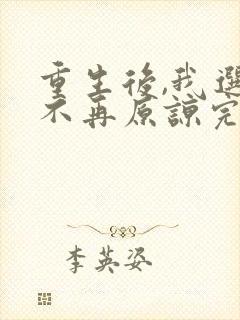 重生後,我選
不再原諒完
李英姿